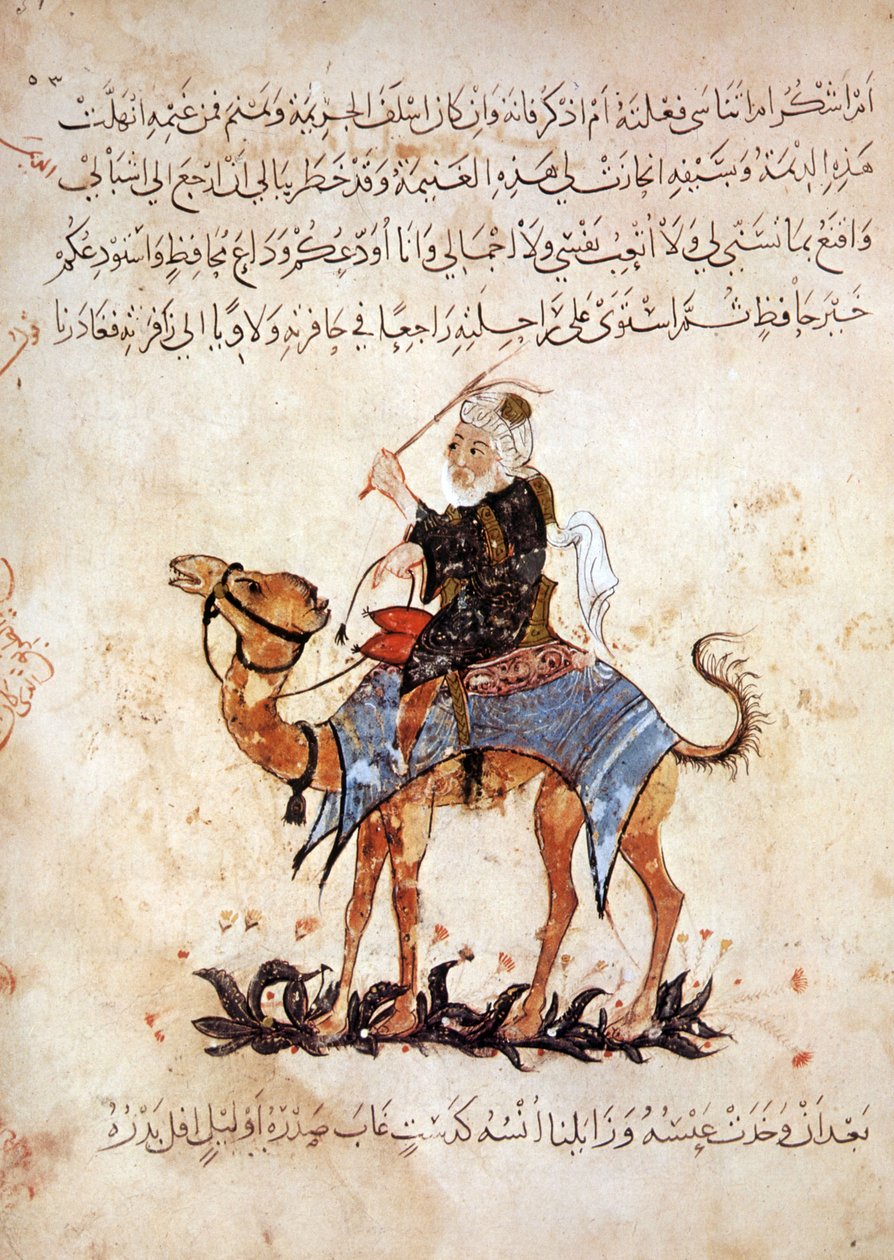 ٥٣
أمرأشكر أم أتناسى فعلته أم أذكر فإنه وإن كان أسلف الجريمة ونمنم فمن غيمه انهلت
هذه الديمة وبسيفه انحازت لي هذه الغنيمة وقد خطر ببالي أن أرجع إلى أشبالي
وأقنع بما تسنى لي ولا أتعب نفسي ولا أجمالي وأنا أودعكم وداع محافظ وأستودعكم
خير حافظ ثم استوى على راحلته راجعا في حافرته ولاويا إلى زافرته فغادرنا
بعد أن وخدت عيسه وزايلنا أنسه كدست غاب صدره أو ليل أفل بدره